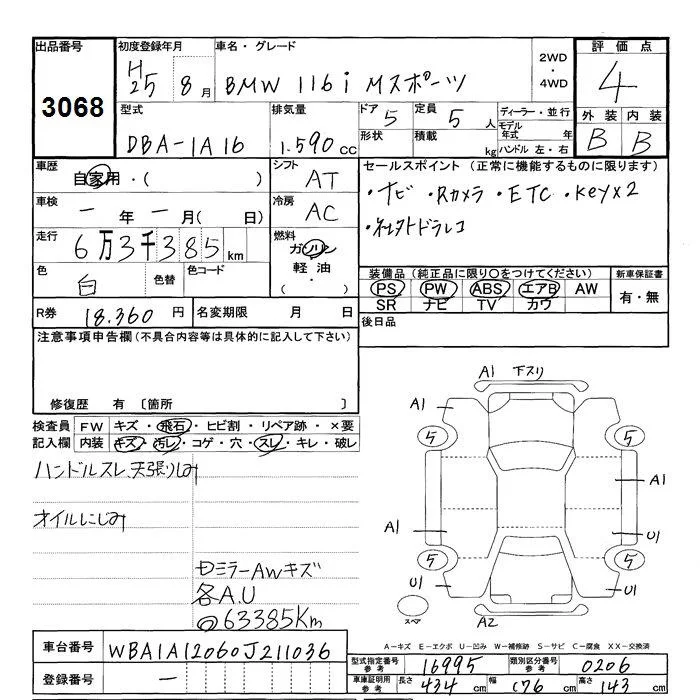 出品番号 初度登録年月 車名・グレード 評価点
3068 H25 8月 BMW 116i Mスポーツ 2WD・4WD 4
型式 排気量 ドア 定員 ディーラー・並行 外装 内装
DBA-1A16 1.590cc 5 5人 モデル年式 年 B B
形状 積載 kg ハンドル 左・右
車歴 自家用・( ) シフト AT セールスポイント (正常に機能するものに限ります)
・ナビ ・Rカメラ ・ETC ・Keyx2
車検 一年 一月( 日) 冷房 AC
・社外ドラレコ
走行 6万3千385km 燃料 ガソリン
軽油
( ・ )
色 白 色替 色コード
装備品 (純正品に限り○をつけてください) 新車保証書
PS PW ABS エアB AW 有・無
SR ナビ TV カワ
R券 18.360円 名変期限 月 日 後日品
注意事項申告欄 (不具合内容等は具体的に記入して下さい)
修復歴 有 〔箇所 〕
検査員 FW キズ・飛石・ヒビ割・リペア跡・×要
記入欄 内装 キズ・汚レ・コゲ・穴・スレ・キレ・破レ
ハンドルスレ、天張りしみ
オイルにじみ
ミラーAWキズ
各A.U
63385Km
A1 下スリ
A1
5 5
A1
A1
U1
5 5
U1 U1
スペア A2
A-キズ E-エクボ U-凹み W-補修跡 S-サビ C-腐食 XX-交換済
車台番号 WBA1A12060J211036
型式指定番号 参考 16995 類別区分番号 参考 0206
登録番号 一
車庫証明用 参考 長さ 434cm 幅 176cm 高さ 143cm